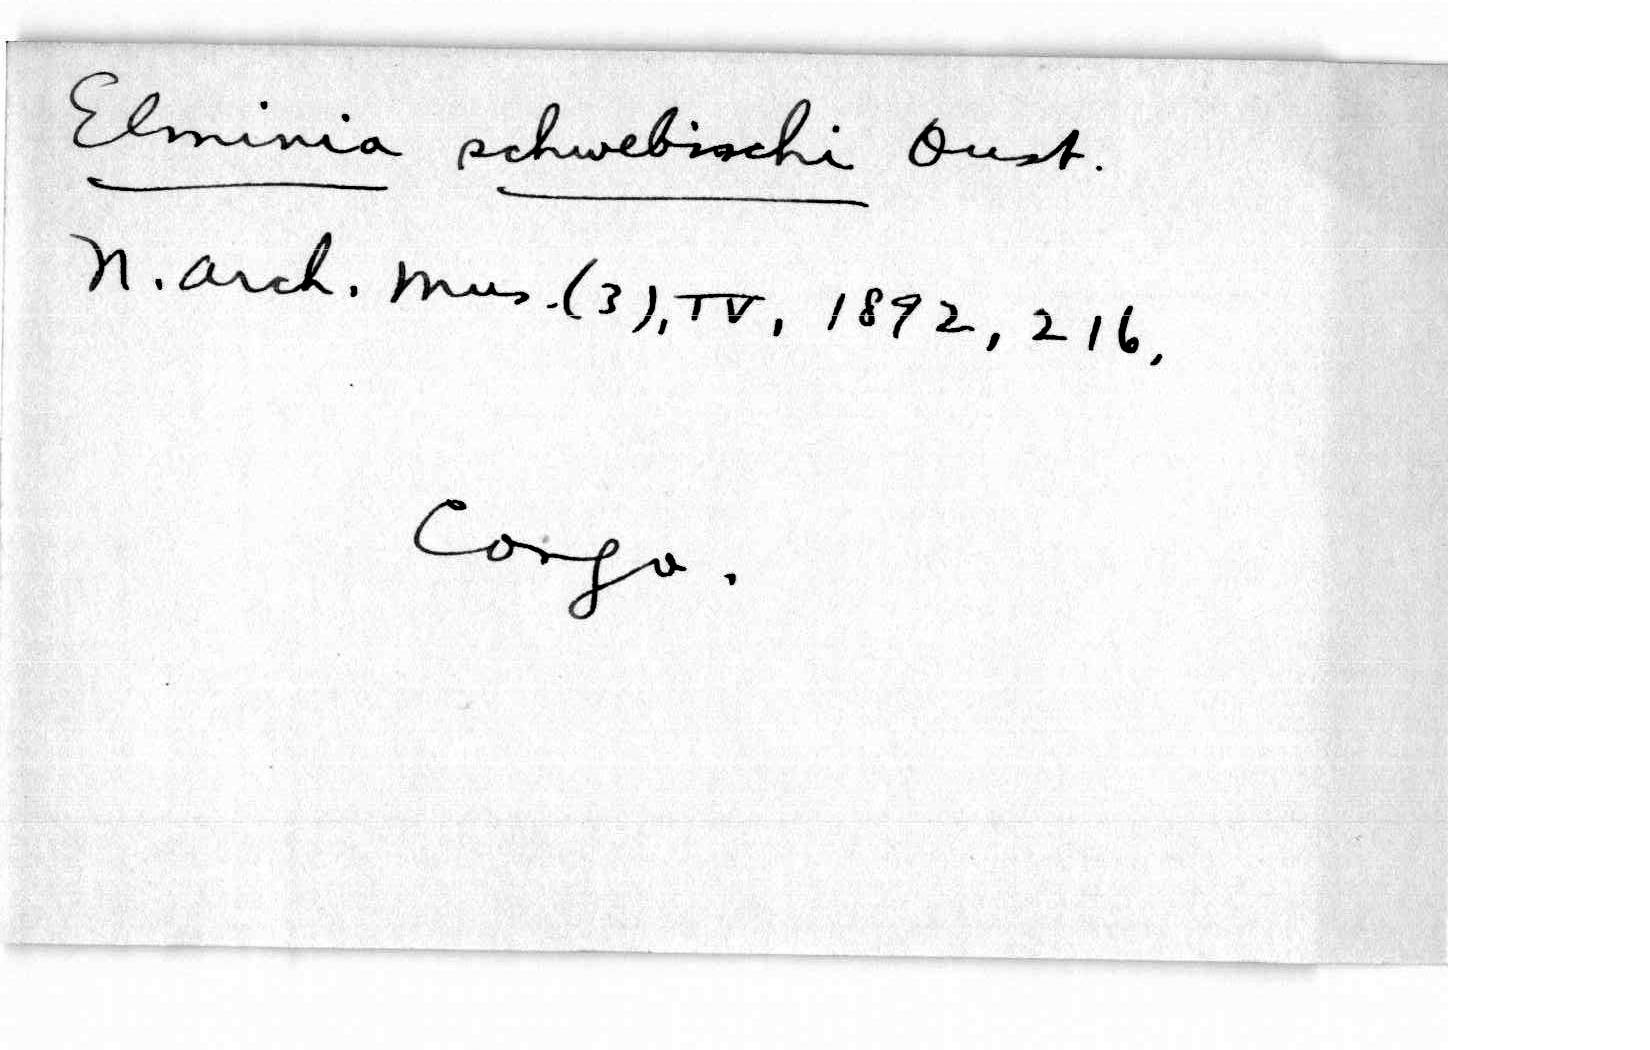 Elminia schwebischi Oust.
N. Arch. Mus. (3), IV, 1892, 216,
Congo.